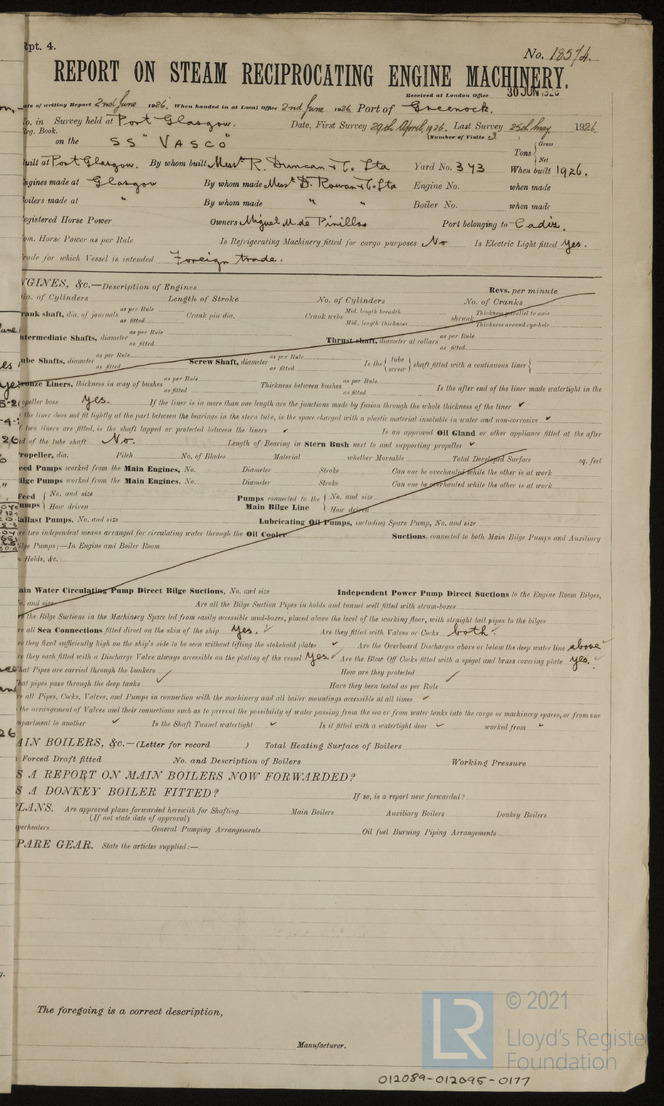 Rpt. 4.
No. 18574.
REPORT ON STEAM RECIPROCATING ENGINE MACHINERY.
Received at London Office 30 JUN 1926
ate of writing Report 2nd June 1926. When handed in at Local Office 2nd June 1926 Port of Greenock.
o. in Survey held at Port Glasgow. Date, First Survey 29th April, 1926. Last Survey 25th May 1926.
eg. Book. (Number of Visits
on the SS "VASCO" Tons { Gross Net
uilt at Port Glasgow. By whom built Messrs R. Duncan & Co. Ltd Yard No. 343 When built 1926.
ngines made at Glasgow By whom made Messrs D. Rowan & Co. Ltd Engine No. when made
oilers made at " By whom made " " Boiler No. when made
egistered Horse Power Owners Miguel M. de Pinillos Port belonging to Cadiz.
om. Horse Power as per Rule Is Refrigerating Machinery fitted for cargo purposes No Is Electric Light fitted Yes.
rade for which Vessel is intended Foreign trade.
NGINES, &c.—Description of Engines Revs. per minute
ia. of Cylinders Length of Stroke No. of Cylinders No. of Cranks
rank shaft, dia. of journals as per Rule as fitted Crank pin dia. Crank webs Mid. length breadth Mid. length thickness shrunk Thickness parallel to axis Thickness around eye-hole
ntermediate Shafts, diameter as per Rule as fitted Thrust shaft, diameter at collars as per Rule as fitted
ube Shafts, diameter as per Rule as fitted Screw Shaft, diameter as per Rule as fitted Is the { tube screw } shaft fitted with a continuous liner {
ronze Liners, thickness in way of bushes as per Rule as fitted Thickness between bushes as per Rule as fitted Is the after end of the liner made watertight in the
opeller boss Yes. If the liner is in more than one length are the junctions made by fusion through the whole thickness of the liner ✓
the liner does not fit tightly at the part between the bearings in the stern tube, is the space charged with a plastic material insoluble in water and non-corrosive ✓
two liners are fitted, is the shaft lapped or protected between the liners ✓ Is an approved Oil Gland or other appliance fitted at the after
nd of the tube shaft No. Length of Bearing in Stern Bush next to and supporting propeller ✓
Propeller, dia. Pitch No. of Blades Material whether Moveable Total Developed Surface sq. feet
eed Pumps worked from the Main Engines, No. Diameter Stroke Can one be overhauled while the other is at work
ilge Pumps worked from the Main Engines, No. Diameter Stroke Can one be overhauled while the other is at work
Feed umps { No. and size How driven Pumps connected to the Main Bilge Line { No. and size How driven
allast Pumps, No. and size Lubricating Oil Pumps, including Spare Pump, No. and size
re two independent means arranged for circulating water through the Oil Cooler Suctions, connected to both Main Bilge Pumps and Auxiliary
ilge Pumps;—In Engine and Boiler Room
Holds, &c.
ain Water Circulating Pump Direct Bilge Suctions, No. and size Independent Power Pump Direct Suctions to the Engine Room Bilges,
o. and size Are all the Bilge Suction Pipes in holds and tunnel well fitted with strum-boxes
the Bilge Suctions in the Machinery Space led from easily accessible mud-boxes, placed above the level of the working floor, with straight tail pipes to the bilges
re all Sea Connections fitted direct on the skin of the ship Yes. ✓ Are they fitted with Valves or Cocks both ✓
re they fixed sufficiently high on the ship's side to be seen without lifting the stokehold plates ✓ Are the Overboard Discharges above or below the deep water line above ✓
re they each fitted with a Discharge Valve always accessible on the plating of the vessel Yes. ✓ Are the Blow Off Cocks fitted with a spigot and brass covering plate Yes. ✓
hat Pipes are carried through the bunkers ✓ How are they protected ✓
hat pipes pass through the deep tanks ✓ Have they been tested as per Rule
re all Pipes, Cocks, Valves, and Pumps in connection with the machinery and all boiler mountings accessible at all times ✓
the arrangement of Valves and their connections such as to prevent the possibility of water passing from the sea or from water tanks into the cargo or machinery spaces, or from one
mpartment to another ✓ Is the Shaft Tunnel watertight ✓ Is it fitted with a watertight door ✓ worked from ✓
AIN BOILERS, &c.—(Letter for record ) Total Heating Surface of Boilers
Forced Draft fitted No. and Description of Boilers Working Pressure
S A REPORT ON MAIN BOILERS NOW FORWARDED?
S A DONKEY BOILER FITTED? If so, is a report now forwarded?
LANS. Are approved plans forwarded herewith for Shafting Main Boilers Auxiliary Boilers Donkey Boilers
(If not state date of approval)
uperheaters General Pumping Arrangements Oil fuel Burning Piping Arrangements
PARE GEAR. State the articles supplied:—
The foregoing is a correct description,
Manufacturer.
LR © 2021
Lloyd's Registe
Foundation
012089-012095-0177